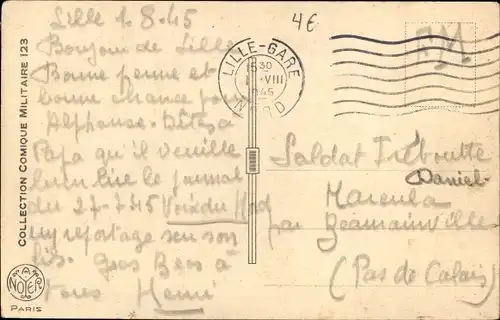 Lille 1.8.45
4€
Bonjour de Lille
Bonne et
bonne chance pour
Alphonse. Dites à
Papa qu'il veuille
bien lire le journal
du 27-7-45 Voix du Nord
un reportage sur son
Gros Bees à
Tous Henri
LILLE-GARE
1530
VIII
1945
NORD
F.M
Soldat
Daniel
par
(Pas de Calais)
COLLECTION COMIQUE MILITAIRE 123
NOYER
PARIS